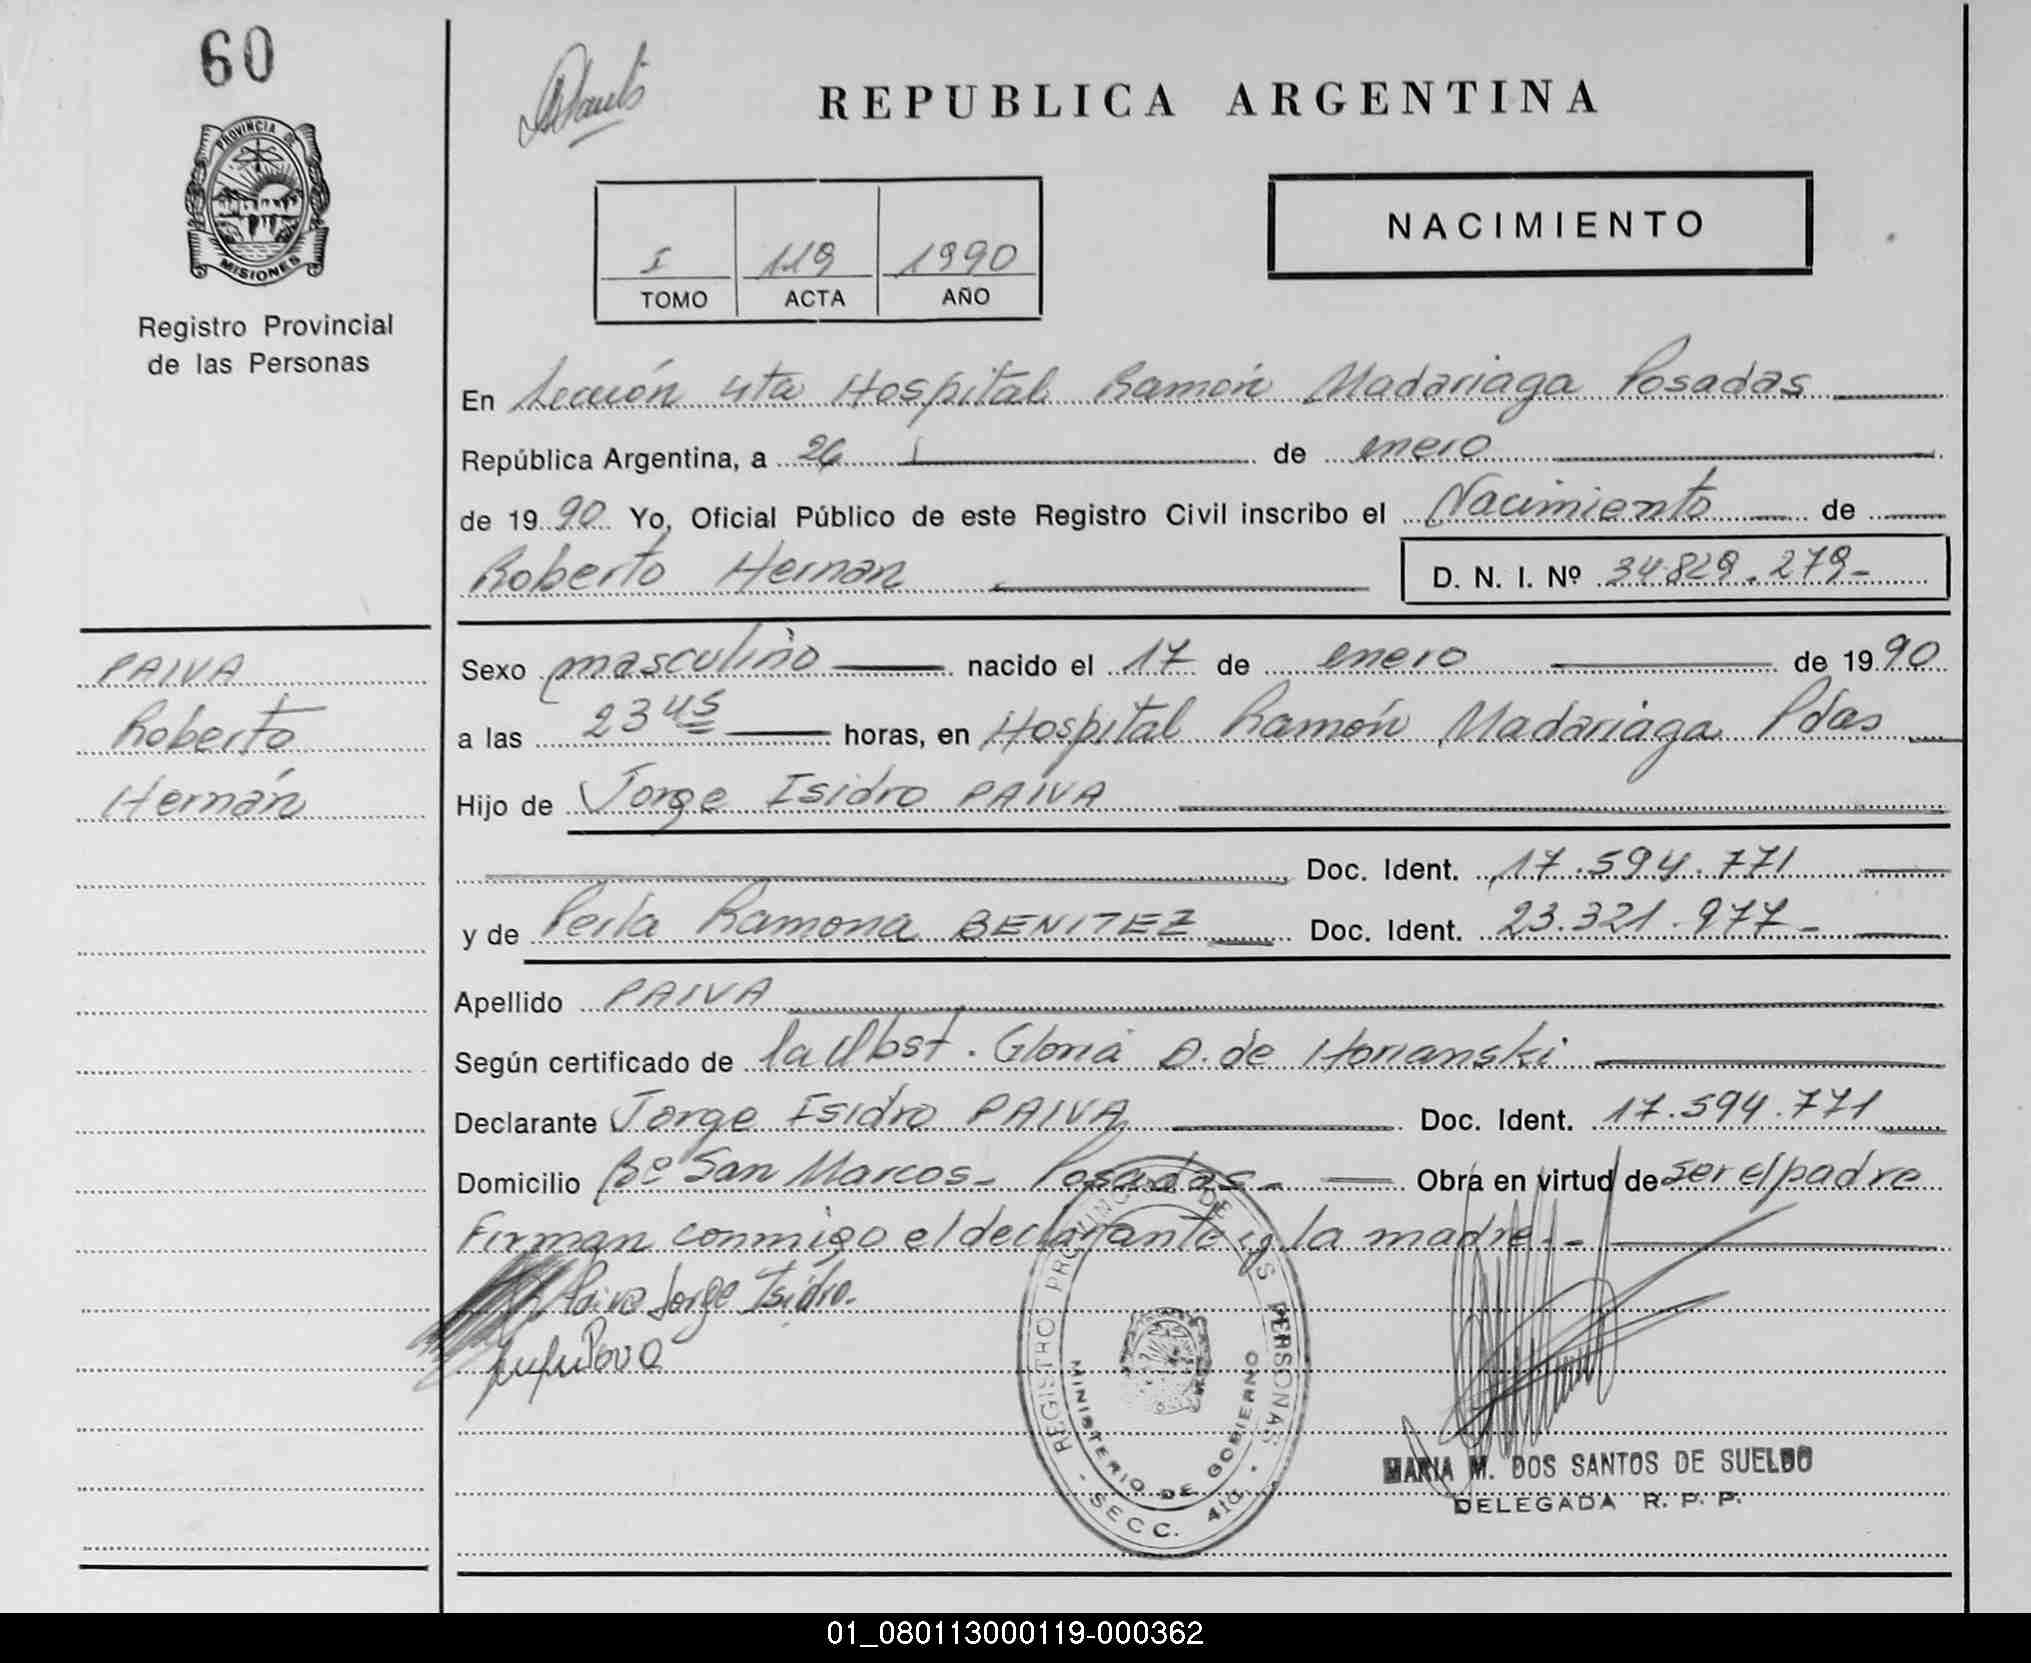 60
PROVINCIA DE
MISIONES
Registro Provincial
de las Personas
REPUBLICA ARGENTINA
NACIMIENTO
I 119 1990
TOMO ACTA AÑO
En Sección 4ta Hospital Ramón Madariaga Posadas
República Argentina, a 26 de enero
de 1990 Yo, Oficial Público de este Registro Civil inscribo el Nacimiento de
Roberto Hernan D. N. I. Nº 34.829.279-
PAIVA
Roberto
Hernán
Sexo masculino nacido el 17 de enero de 1990
a las 23 45 horas, en Hospital Ramón Madariaga Pdas
Hijo de Jorge Isidro PAIVA
Doc. Ident. 17.594.771
y de Perla Ramona BENITEZ Doc. Ident. 23.321.977-
Apellido PAIVA
Según certificado de la Obst. Gloria D. de Horianski
Declarante Jorge Isidro PAIVA Doc. Ident. 17.594.771
Domicilio Bº San Marcos- Posadas- Obra en virtud de ser el padre
Firman conmigo el declarante y la madre.-
Paiva Jorge Isidro.
REGISTRO PROVINCIAL DE LAS PERSONAS
MINISTERIO DE GOBIERNO
- SECC. 4ta. -
MARIA M. DOS SANTOS DE SUELDO
DELEGADA R. P. P.
01_080113000119-000362